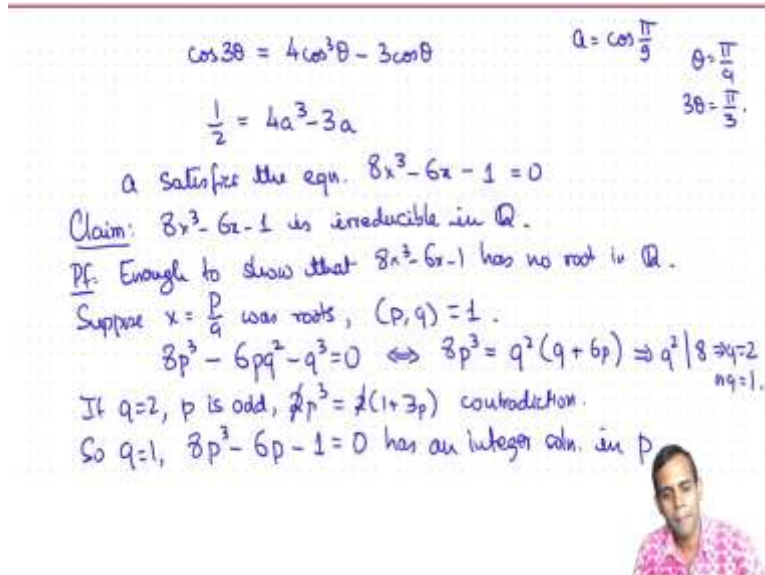 cos3θ = 4cos³θ - 3cosθ
a = cos π/9
θ = π/9
3θ = π/3.
1/2 = 4a³ - 3a
a satisfies the eqn. 8x³ - 6x - 1 = 0
Claim: 8x³ - 6x - 1 is irreducible in Q.
Pf: Enough to show that 8x³ - 6x - 1 has no root in Q.
Suppose x = p/q was roots, (p, q) = 1.
8p³ - 6pq² - q³ = 0 ⇔ 8p³ = q²(q + 6p) ⇒ q² | 8 ⇒ q=2
or q=1.
If q=2, p is odd, 2p³ = 2(1+3p) contradiction.
So q=1, 8p³ - 6p - 1 = 0 has an integer soln. in p